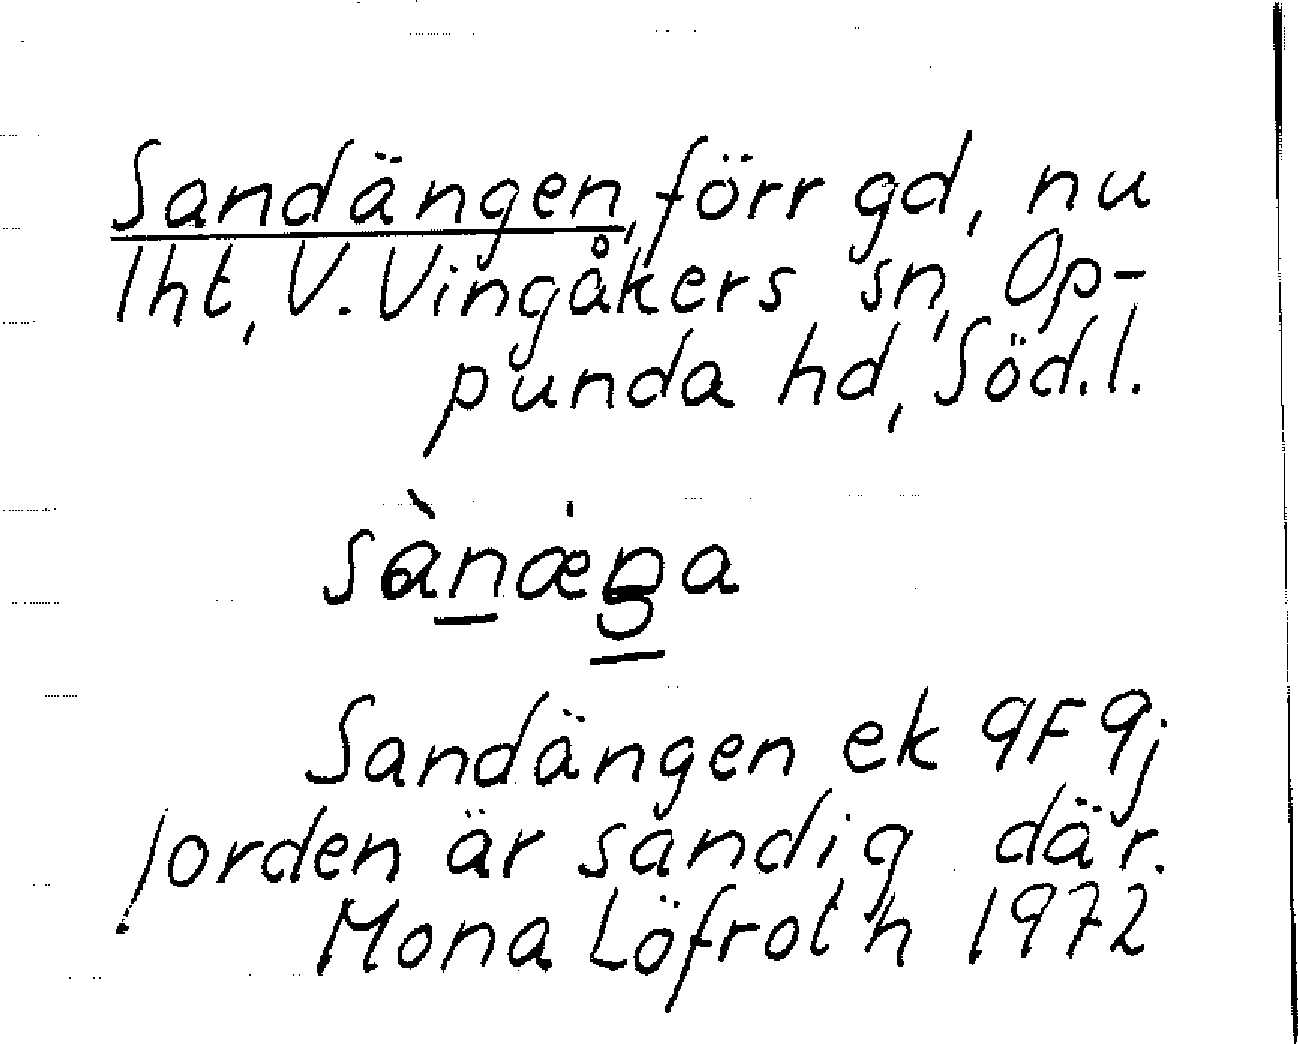 Sandängen, förr gd, nu
lht, V. Vingåkers sn, Op-
punda hd, Söd.l.
sànæŋa
Sandängen ek 9F 9j
Jorden är sandig där.
Mona Löfroth 1972